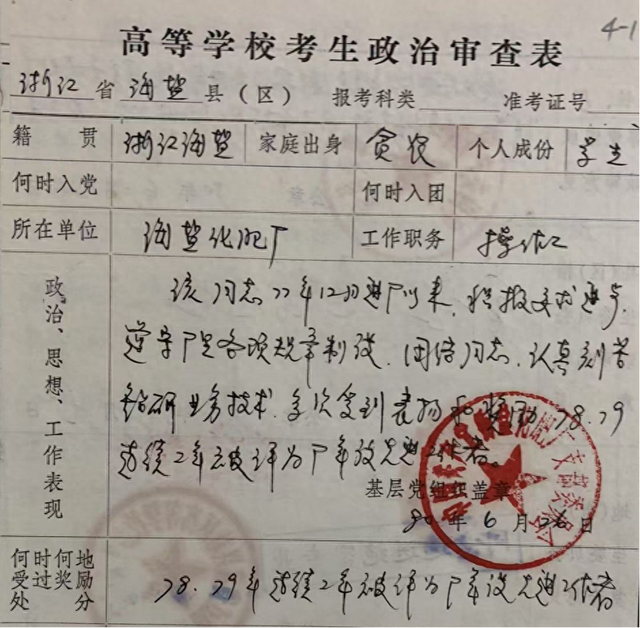 4-1
高等学校考生政治审查表
浙江 省 海盐 县（区） 报考科类 准考证号
籍贯 浙江海盐 家庭出身 贫农 个人成份 学生
何时入党 何时入团
所在单位 海盐化肥厂 工作职务 操作工
政治、思想、工作表现
该同志77年12月进厂以来，积极要求进步，
遵守厂里各项规章制度，团结同志，认真刻苦
钻研业务技术，多次受到表扬和奖励，78.79
连续二年被评为厂年度先进工作者。
基层党组织盖章
80年6月26日
何时何地受过奖励处分 78.79年连续二年被评为厂年度先进工作者